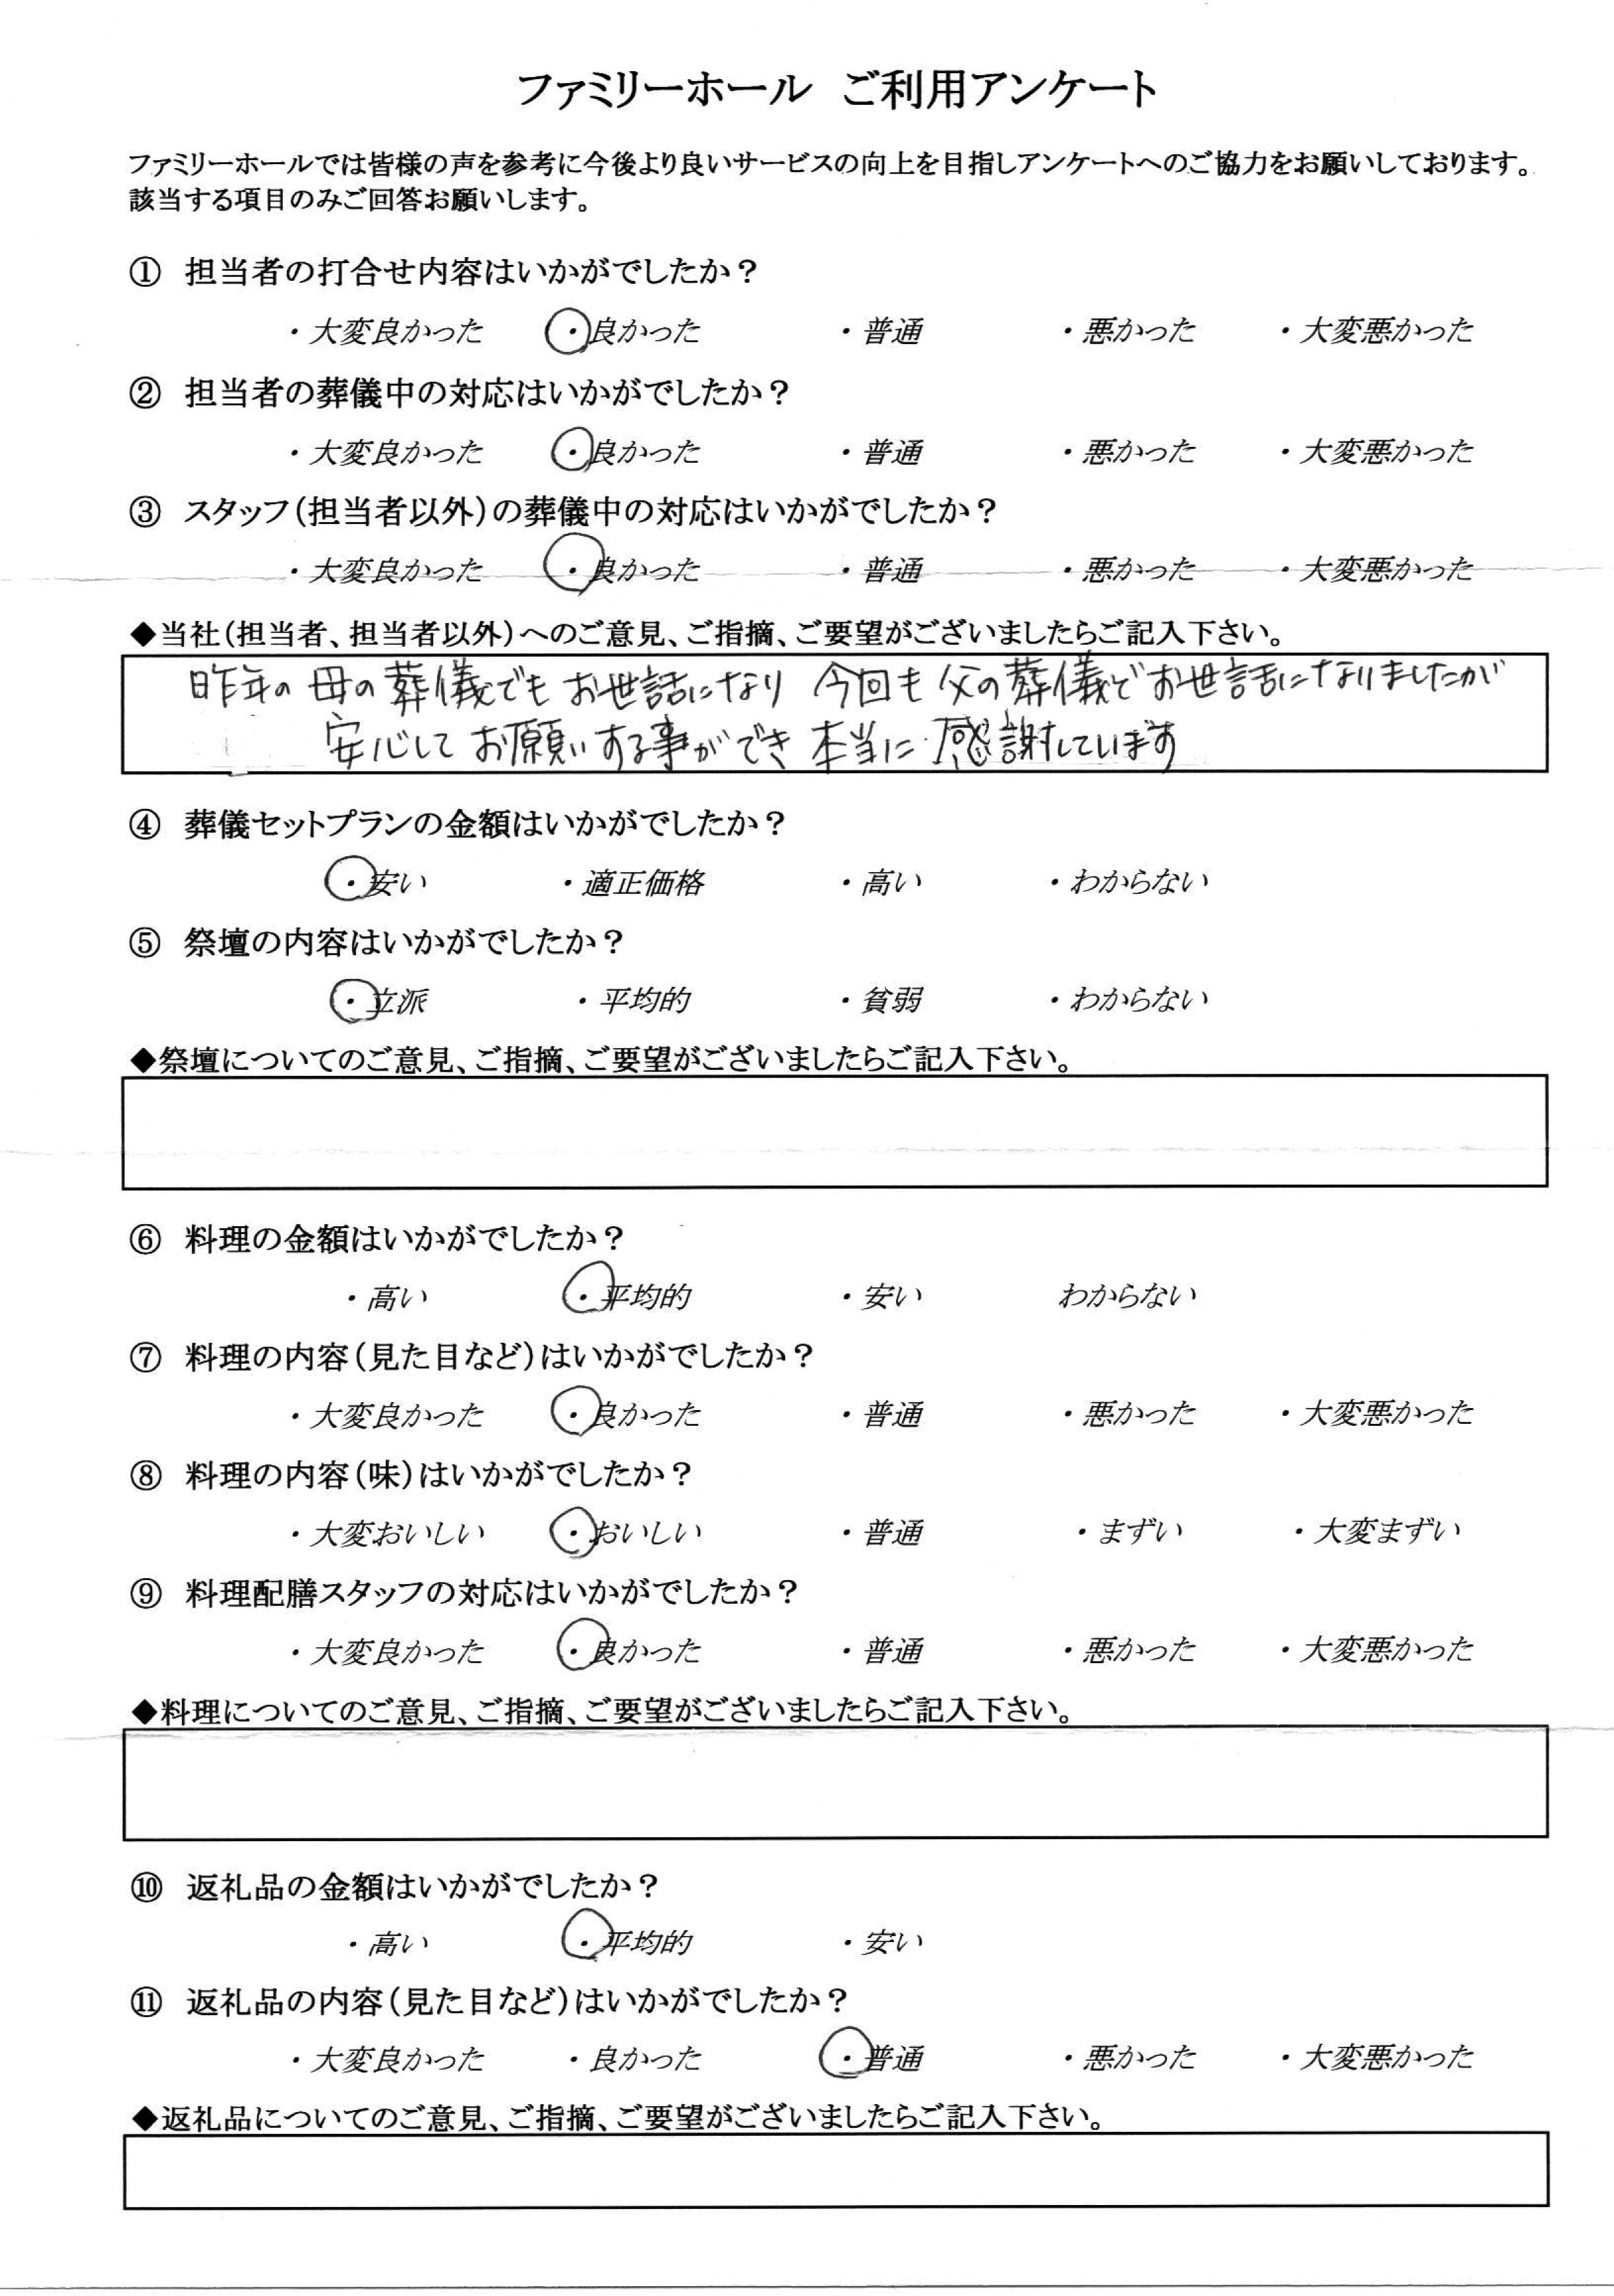 ファミリーホール　ご利用アンケート
ファミリーホールでは皆様の声を参考に今後より良いサービスの向上を目指しアンケートへのご協力をお願いしております。
該当する項目のみご回答お願いします。
① 担当者の打合せ内容はいかがでしたか？
・大変良かった ・良かった ・普通 ・悪かった ・大変悪かった
② 担当者の葬儀中の対応はいかがでしたか？
・大変良かった ・良かった ・普通 ・悪かった ・大変悪かった
③ スタッフ（担当者以外）の葬儀中の対応はいかがでしたか？
・大変良かった ・良かった ・普通 ・悪かった ・大変悪かった
◆当社（担当者、担当者以外）へのご意見、ご指摘、ご要望がございましたらご記入下さい。
昨年の 母の 葬儀でも お世話になり 今回も 父の葬儀で お世話になりましたが
安心して お願いする事ができ 本当に 感謝しています
④ 葬儀セットプランの金額はいかがでしたか？
・安い ・適正価格 ・高い ・わからない
⑤ 祭壇の内容はいかがでしたか？
・立派 ・平均的 ・貧弱 ・わからない
◆祭壇についてのご意見、ご指摘、ご要望がございましたらご記入下さい。
⑥ 料理の金額はいかがでしたか？
・高い ・平均的 ・安い わからない
⑦ 料理の内容（見た目など）はいかがでしたか？
・大変良かった ・良かった ・普通 ・悪かった ・大変悪かった
⑧ 料理の内容（味）はいかがでしたか？
・大変おいしい ・おいしい ・普通 ・まずい ・大変まずい
⑨ 料理配膳スタッフの対応はいかがでしたか？
・大変良かった ・良かった ・普通 ・悪かった ・大変悪かった
◆料理についてのご意見、ご指摘、ご要望がございましたらご記入下さい。
⑩ 返礼品の金額はいかがでしたか？
・高い ・平均的 ・安い
⑪ 返礼品の内容（見た目など）はいかがでしたか？
・大変良かった ・良かった ・普通 ・悪かった ・大変悪かった
◆返礼品についてのご意見、ご指摘、ご要望がございましたらご記入下さい。